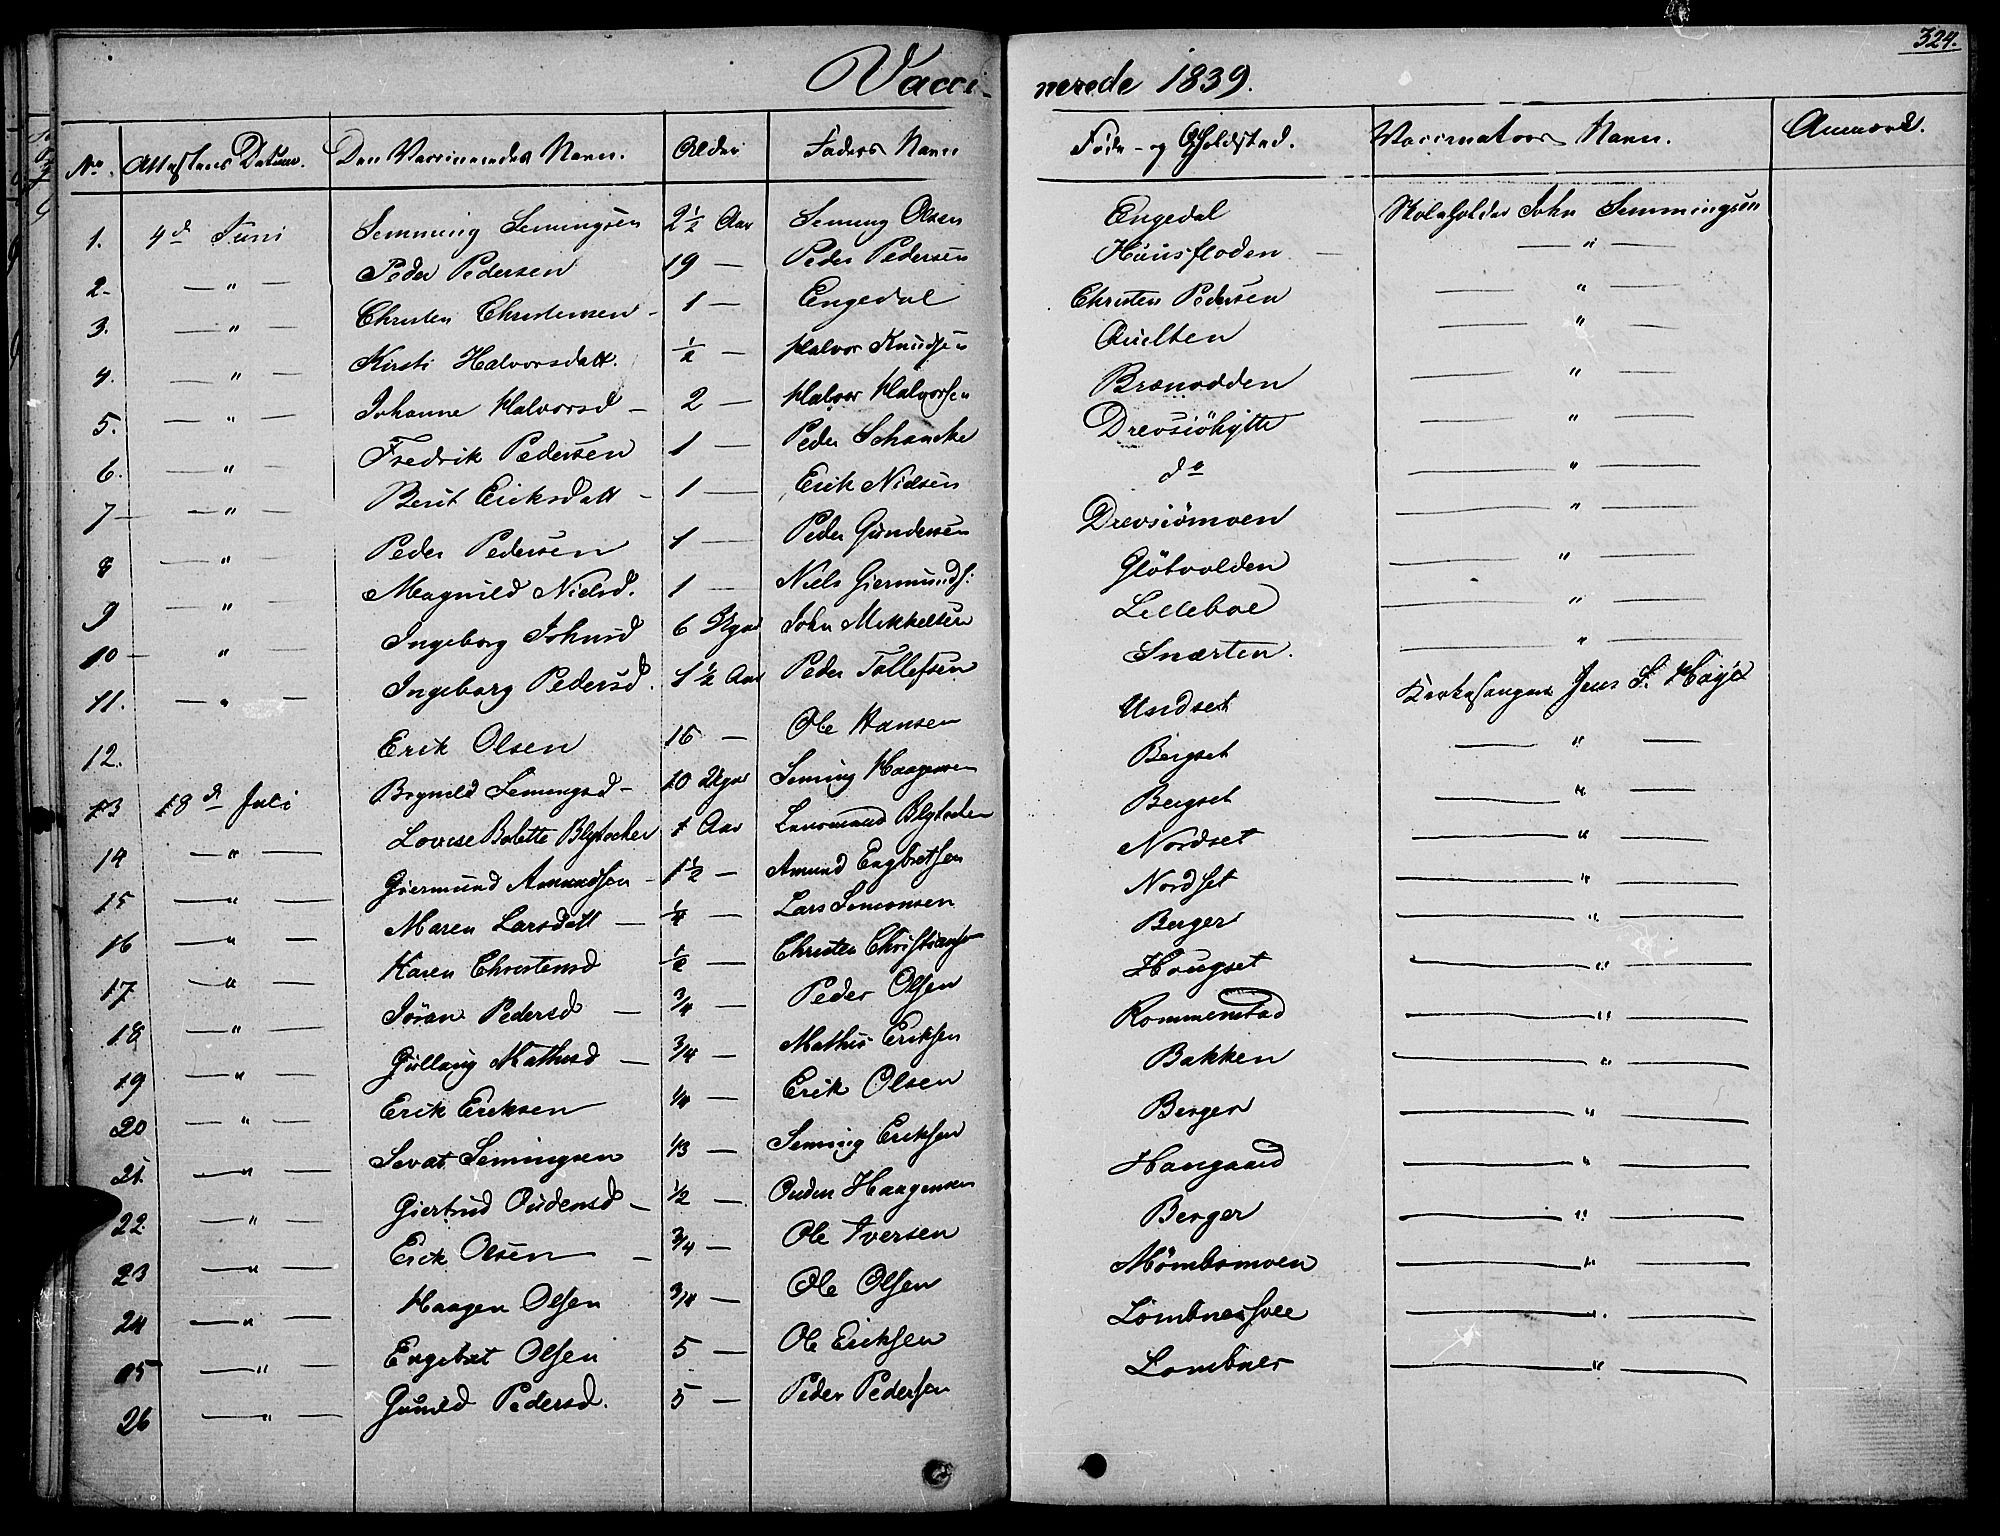 324.
Vaccinerede 1839.
No. Attestens Datum. Den Vaccineredes Navn. Alder Faders Navn Føde- og Opholdsted. Vaccinators Navn. Anmærk.
1. 4d Juni Semming Semingsen 2½ Aar Seming Olsen Engedal Skoleholder John Semmingsen
2. — " — Peder Pedersen 19 — Peder Pedersen Huusfloden — " —
3. — " — Christen Christensen 1 — Engedal Christen Pedersen — " —
4. — " — Kirsti Halvorsdatt. ½ — Halvor Knudsen Qvilten — " —
5. — " — Johanne Halvorsd — 2 — Halvor Halvorsen Brænodden — " —
6. — " — Fredrik Pedersen 1 — Peder Schancke Drevsiöhytte — " —
7 — " — Berit Eriksdatt — 1 — Erik Nielsen do — " —
8 — " — Peder Pedersen 1 — Peder Gundersen Drevsiömoen — " —
9 — " — Magnild Nielsd. 1 — Niels Giermunds: Glötvolden — " —
10 — " — Ingeborg Johnsd 6 Uger John Mikkelsen Lilleboe — " —
11. — " — Ingeborg Pedersd. 1½ Aar Peder Tollefsen Snærten. — " —
12. Erik Olsen 16 — Ole Hansen Undset Kirkesanger Jens S. Høye
13 18d Juli Brynild Semingsd — 10 Uger Seming Haagensen Bergset — " —
14 — " — Lovise Bolette Blytocker 1 Aar Lensmand Blytocker Bergset — " —
15 — " — Giermund Amundsen — 1½ — Amund Engbretsen Nordset — " —
16 — " — Maren Larsdatt — ¼ — Lars Simonsen Nordset — " —
17 — " — Karen Christensd ½ — Christen Christians Berger — " —
18 — " — Jöran Pedersd — ¾ — Peder Olsen Hougset — " —
19 — " — Gullaug Mathisd — ¾ — Mathis Eriksen Rommenstad — " —
20 — " — Erik Eriksen ¼ — Erik Olsen Bakken — " —
21. — " — Sevat Semingsen 1/3 — Seming Eriksen Berger — " —
22. — " — Giertrud Oudensd — ½ — Ouden Haagensen Haugaard — " —
23 — " — Erik Olsen — ¾ — Ole Iversen Berger — " —
24 — " — Haagen Olsen ¾ — Ole Olsen Mömbsmoen — " —
25 — " — Engebret Olsen 5 — Ole Eriksen Lombnesfloe — " —
26 — " — Gunild Pedersd. 5 — Peder Pedersen Lombnes — " —